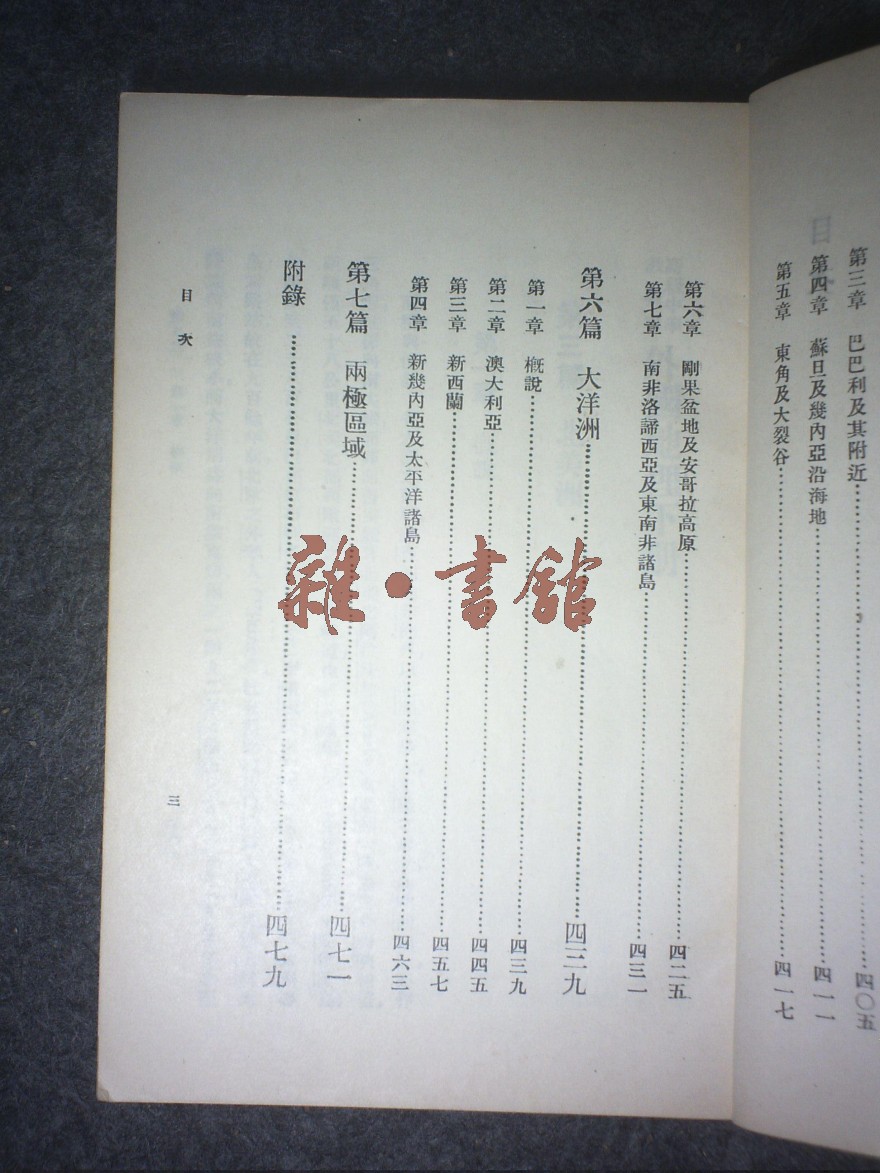 第三章 巴巴利及其附近……四〇五
第四章 蘇旦及幾內亞沿海地……四一一
第五章 東角及大裂谷……四一七
第六章 剛果盆地及安哥拉高原……四二五
第七章 南非洛諦西亞及東南非諸島……四三一
第六篇 大洋洲……四三九
第一章 概說……四三九
第二章 澳大利亞……四四五
第三章 新西蘭……四五七
第四章 新幾內亞及太平洋諸島……四六三
第七篇 兩極區域……四七一
附錄……四七九
目次
三
雜·書館